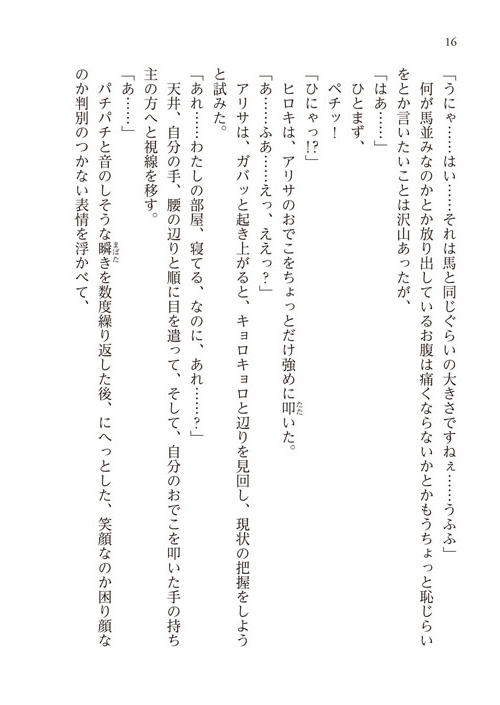 16
「うにゃ……はい……それは馬と同じぐらいの大きさですねぇ……うふふ」
何が馬並みなのかとか放り出しているお腹は痛くならないかとかもうちょっと恥じらい
をとか言いたいことは沢山あったが、
「はあ……」
ひとまず、
ペチッ！
「ひにゃっ!?」
ヒロキは、アリサのおでこをちょっとだけ強めに叩いた。
「あ……ふあ……えっ、ええっ？」
アリサは、ガバッと起き上がると、キョロキョロと辺りを見回し、現状の把握をしよう
と試みた。
「あれ……わたしの部屋、寝てる、なのに、あれ……？」
天井、自分の手、腰の辺りと順に目を遣って、そして、自分のおでこを叩いた手の持ち
主の方へと視線を移す。
「あ……」
パチパチと音のしそうな瞬きを数度繰り返した後、にへっとした、笑顔なのか困り顔な
のか判別のつかない表情を浮かべて、